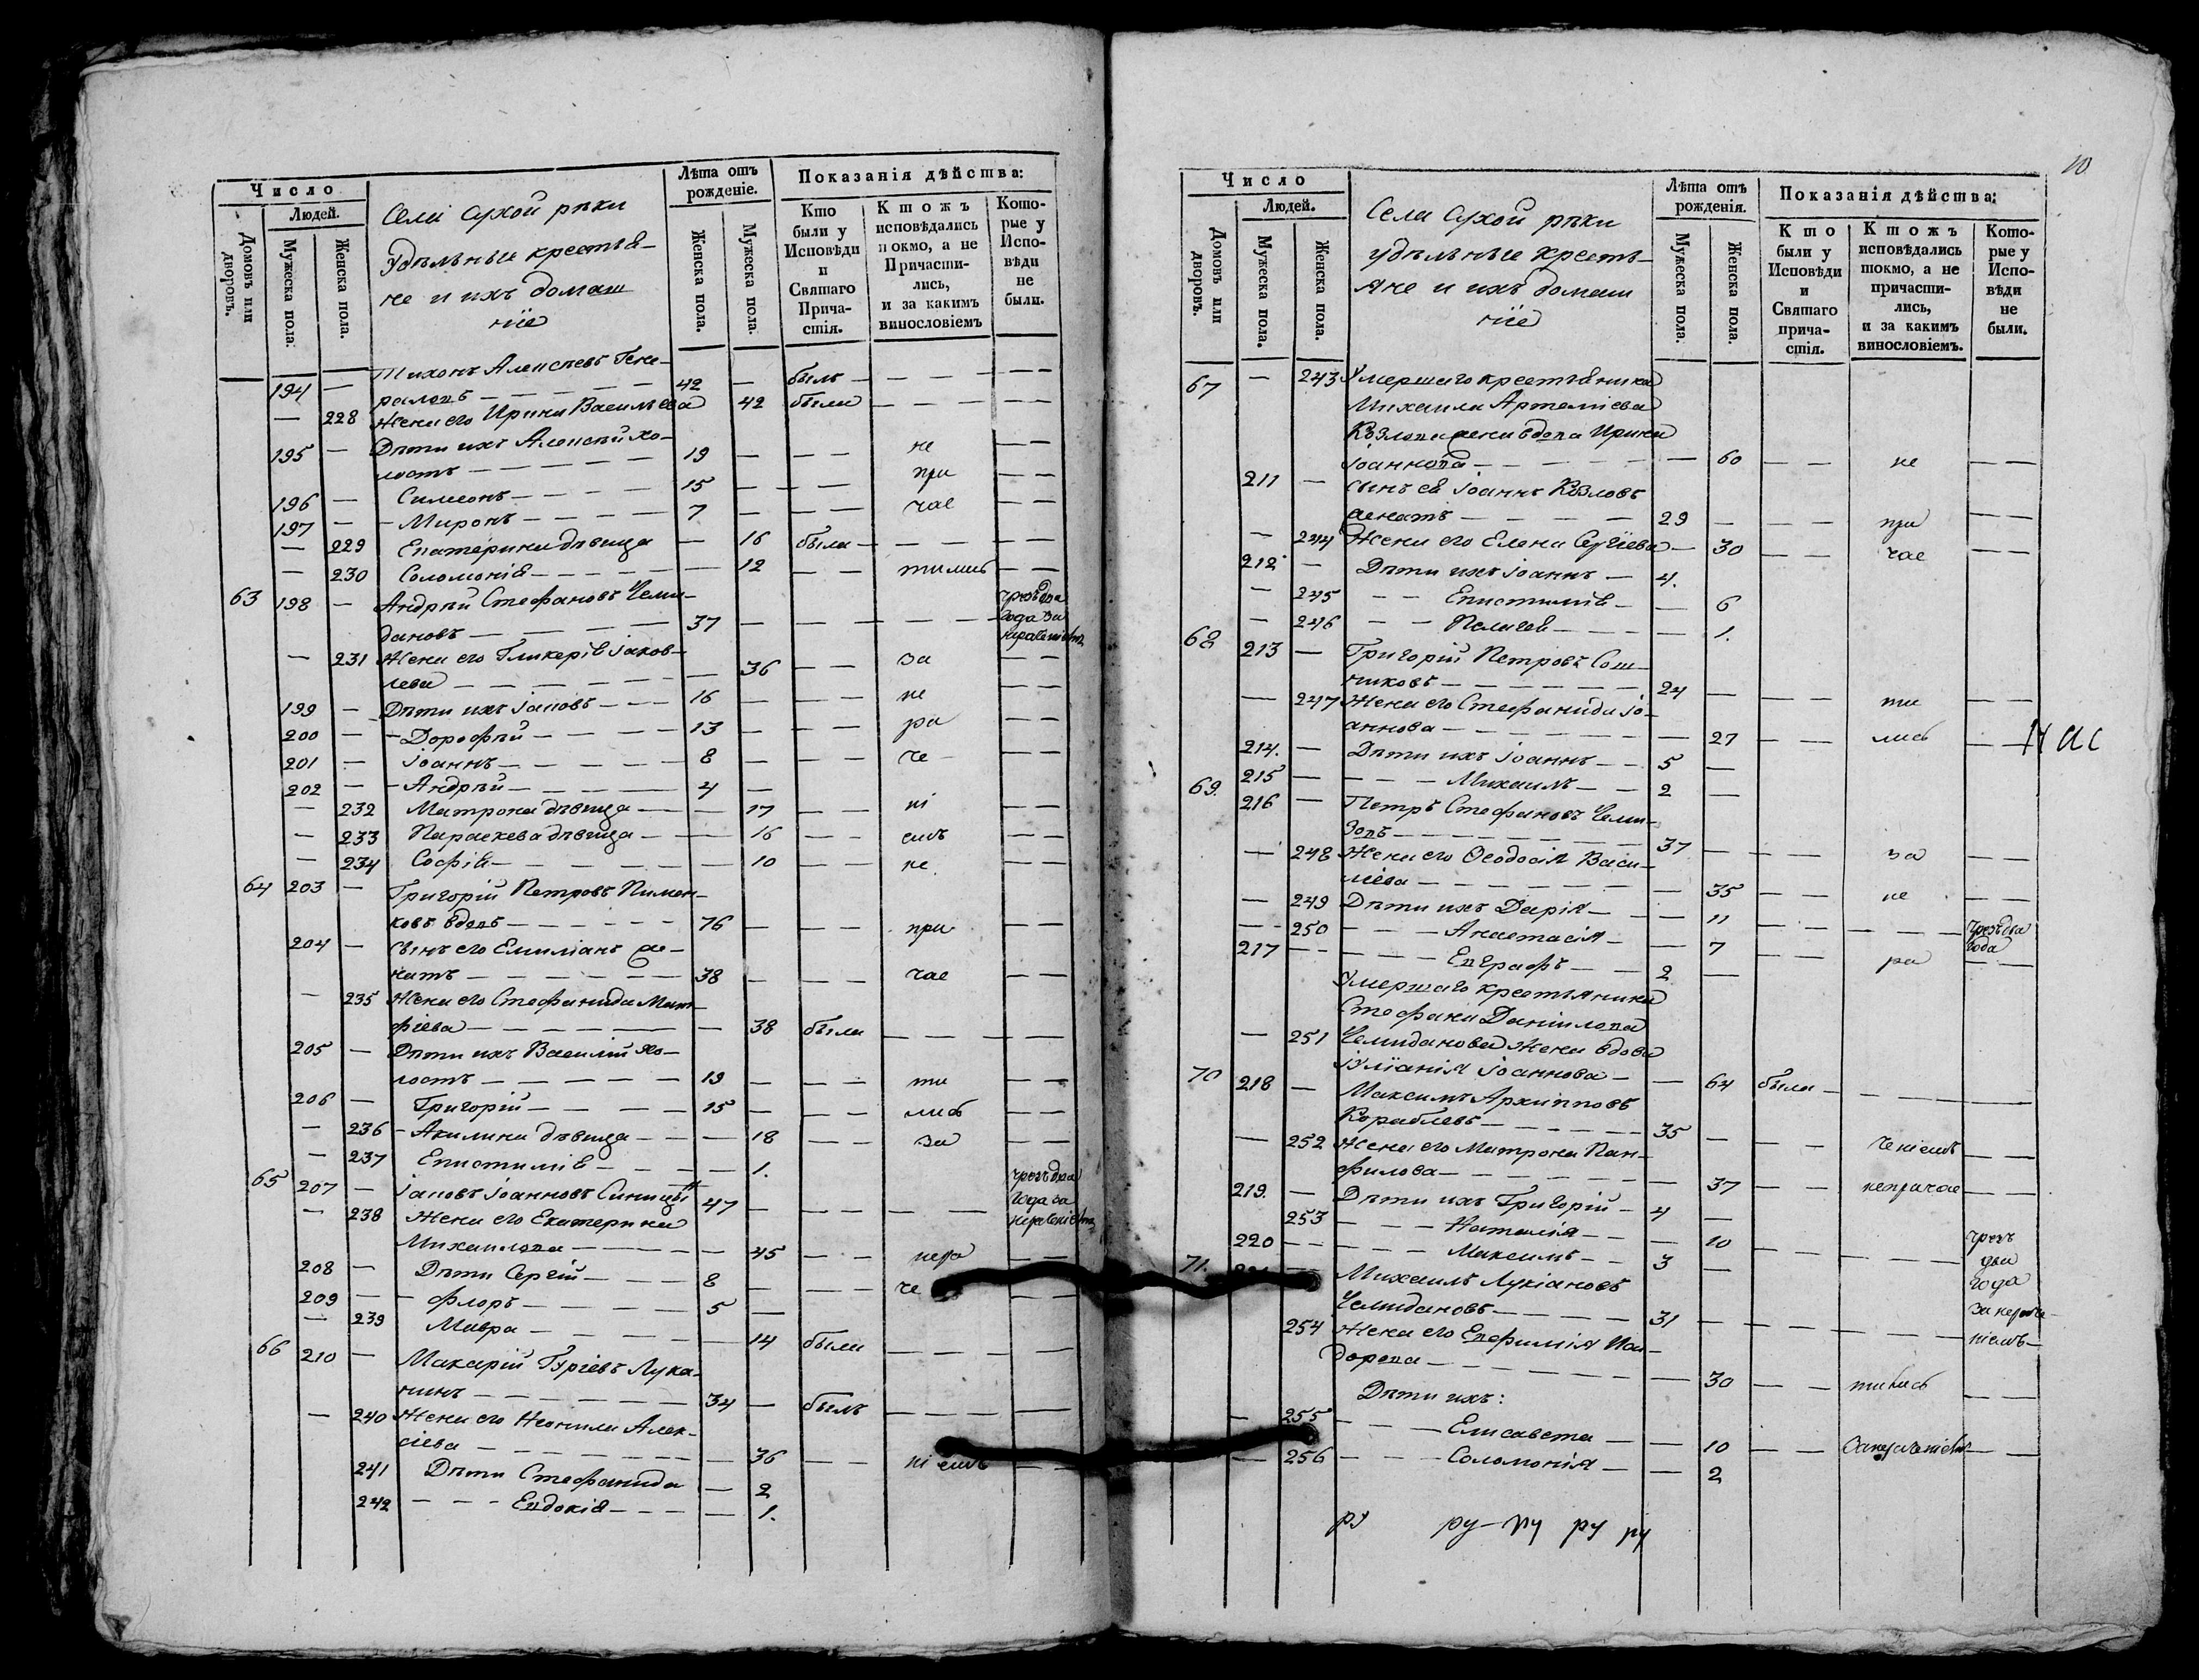 Число
Людей.
Домовъ или дворовъ.
Мужеска пола.
Женска пола.
Села Сухой рѣки
удѣльные крестья-
не и ихъ домаш
ніе
Лѣта отъ рожденіе.
Женска пола.
Мужеска пола.
Показанія дѣйства:
Кто были у Исповѣди и Святаго Прича-стія.
Ктожъ исповѣдались токмо, а не Причасти-лись, и за какимъ винословіемъ
Кото-рые у Испо-вѣди не были.
Тихонъ Алексѣевъ Гене-
194 — раловъ — 42 — былъ — — —
— 228 Жена его Ирина Васильева 42 была — — —
195 — Дѣти ихъ Алексѣй хо-
лостъ — 19 — — — не — —
196 — Симеонъ — 15 — — — при — —
197 — Миронъ — 7 — — — час — —
— 229 Екатерина дѣвица — 16 была — — —
— 230 Соломонія — 12 — — тились — —
63 198 — Андрѣй Стефановъ Чеми-
дановъ — 37 — — — чрезъ два года за нераченіемъ
— 231 Жена его Гликерія Іаков-
лева — 36 — — за — —
199 — Дѣти ихъ Іаковъ — 16 — — не — —
200 — Дорофѣй — 13 — — — ра — —
201 — Іоаннъ — 8 — — — че — —
202 — Андрѣй — 4 —
— 232 Матрона дѣвица — 17 — ні — —
— 233 Параскева дѣвица — 16 — — емъ — —
— 234 Софія — 10 — — не — —
64 203 — Григорій Петровъ Пимен-
ковъ вдовъ — 76 — — — при — —
204 — Сынъ его Емиліанъ же-
натъ — 38 — — — час — —
— 235 Жена его Стефанида Мат-
фіева — 38 была — — —
205 — Дѣти ихъ Василій хо-
лостъ — 19 — — — ти — —
206 — Григорій — 15 — — — лись — —
— 236 — Акилина дѣвица — 18 — — за — —
— 237 Епистимія — 1.
65 207 — Іаковъ Іоанновъ Синицы 47 — — — чрезъ два года за нераченіемъ
— 238 Жена его Екатерина
Михаилова — 45 — — нера — —
208 — Дѣти Сергій — 8 — — — че — —
209 — Флоръ — 5 —
— 239 Мавра — 14 была — — —
66 210 — Макарій Гуріевъ Лука-
нинъ — 34 — былъ — — —
— 240 Жена его Неонила Алек-
сіева — 36 — — ніемъ — —
241 Дѣти Стефанида — 2
242 — — — Евдокія — 1.
10
Число
Людей.
Домовъ или дворовъ.
Мужеска пола.
Женска пола.
Села Сухой рѣки
удѣльные кресть-
яне и ихъ домаш
ніе
Лѣта отъ рожденія.
Мужеска пола.
Женска пола.
Показанія дѣйства:
Кто были у Исповѣди и Святаго прича-стія.
Ктожъ исповѣдались токмо, а не причасти-лись, и за какимъ винословіемъ.
Кото-рые у Испо-вѣди не были.
67 — 243 Умершаго крестьянина
Михаила Артеміева
Козлова жена вдова Ирина
Іоаннова — 60 — — не — —
211 — Сынъ ея Іоаннъ Козловъ
женатъ — 29 — — — при — —
— 244 Жена его Елена Сергіева — 30 — — час — —
212 — Дѣти ихъ Іоаннъ — 4.
— 245 — — Епистимія — 6
— 246 — — Пелагея — 1.
68 213 — Григорій Петровъ Сош-
никовъ — 24 — — — ти — —
— 247 Жена его Стефанида Іо-
аннова — 27 — — лись — —
Нас
214. — Дѣти ихъ Іоаннъ — 5 —
215 — — — Михаилъ — 2 —
69. 216 — Петръ Стефановъ Чеми-
зовъ — 37 — — — за — —
— 248 Жена его Ѳеодосія Васи-
ліева — 35 — — не — —
— 249 Дѣти ихъ Дарія — 11 — — — чрезъ два года
— 250 — — — Анастасія — 7 — — ра — —
217 — — — Евграфъ — 2 —
Умершаго крестьянина
Стефана Даніилова
— 251 Чемиданова жена вдова
Іуліанія Іоаннова — 64 была — — —
70 218 — Максимъ Архипповъ
Кораблевъ — 35 — — — ченіемъ — —
— 252 Жена его Матрона Пан-
филова — 37 — — непричас — —
219. — Дѣти ихъ Григорій — 4 —
253 — — — Наталія — 10 — — — чрезъ два года за нераче-ніемъ —
220 — — — Максимъ — 3 —
71. — Михаилъ Лукіановъ
Чемидановъ — 31 — — — —
254 Жена его Евфимія Иси-
дорова — 30 — — тились — —
Дѣти ихъ:
— 255 — — Елисавета — 10 — — Занераченіемъ — —
— 256 — — — Соломонія — 2
ру ру ру ру ру